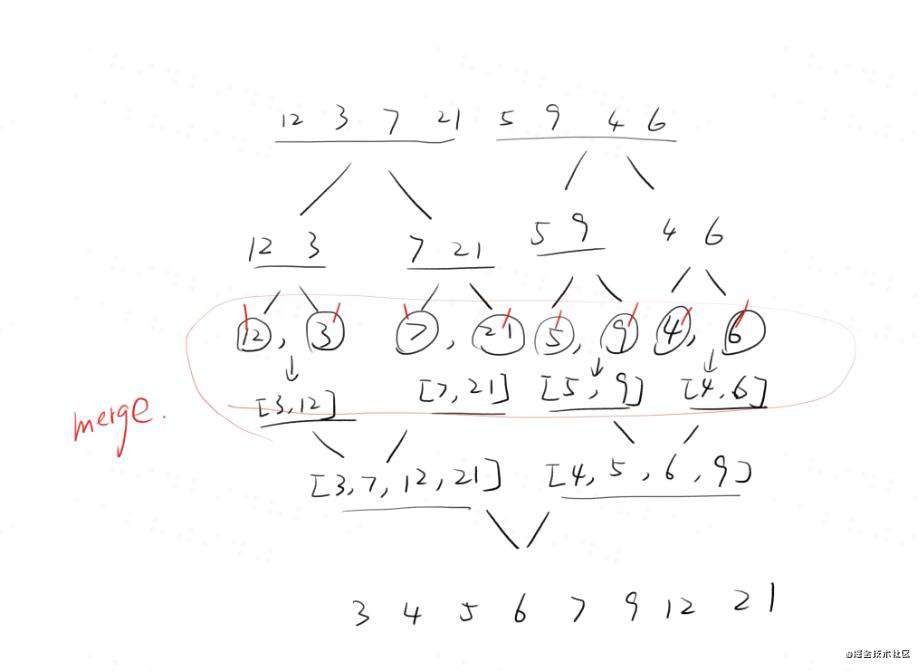 12 3 7 21 5 9 4 6
12 3 7 21 5 9 4 6
12, 3 7, 21 5, 9 4, 6
[3,12] [7,21] [5,9] [4,6]
merge.
[3,7,12,21] [4,5,6,9]
3 4 5 6 7 9 12 21
@掘金技术社区